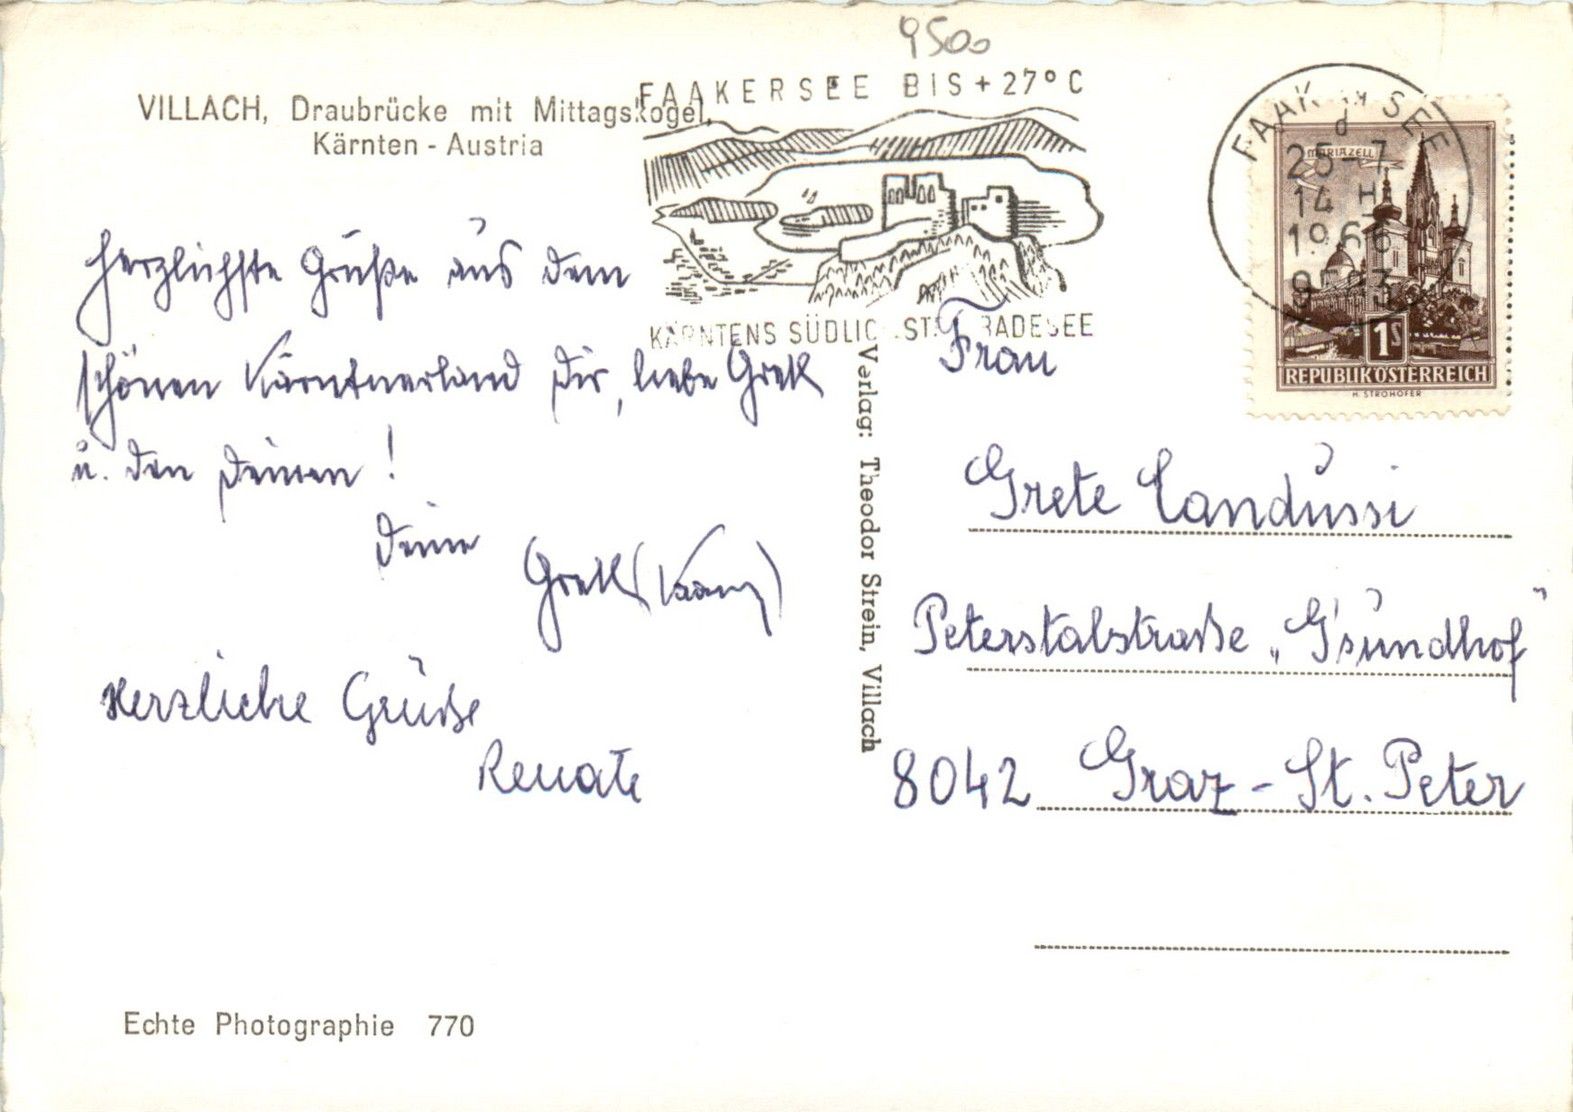 9500
VILLACH, Draubrücke mit Mittagskogel,
Kärnten - Austria
FAAKERSEE BIS + 27° C
KÄRNTENS SÜDLICHSTER BADESEE
FAAK AM SEE
d
25-7
14 H
1966
9583
MARIAZELL
1S
REPUBLIK ÖSTERREICH
H. STROHOFER
Herzlichste Grüße aus dem
schönen Kärntnerland Dir, liebe Gretl
u. den Deinen!
Deine
Gretl
Herzliche Grüße
Renate
Verlag: Theodor Strein, Villach
Frau
Grete Candussi
Peterstalstraße „G'sundhof"
8042 Graz - St. Peter
Echte Photographie 770